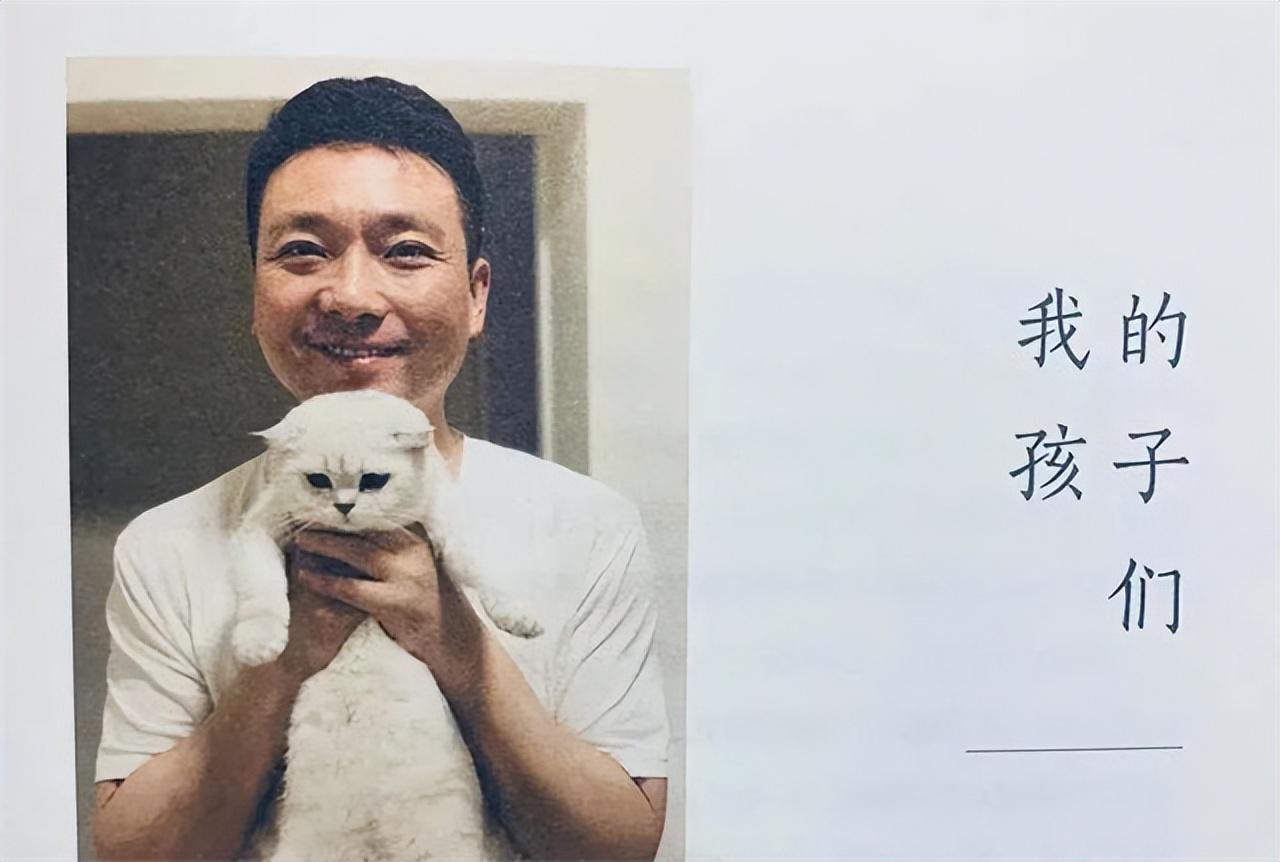 我的
孩子
们